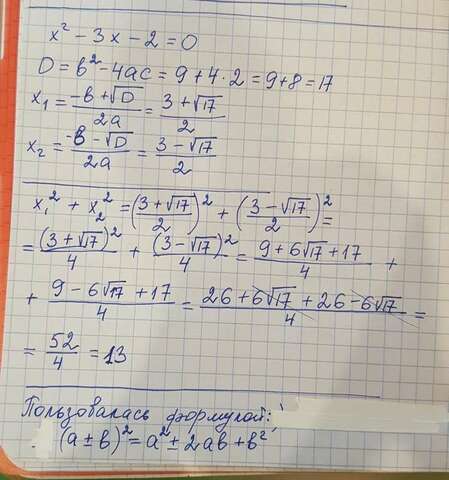 x² - 3x - 2 = 0
D = b² - 4ac = 9 + 4 · 2 = 9 + 8 = 17
x₁ = (-b + √D)/2a = (3 + √17)/2
x₂ = (-b - √D)/2a = (3 - √17)/2
x₁² + x₂² = ((3 + √17)/2)² + ((3 - √17)/2)² =
= (3 + √17)²/4 + (3 - √17)²/4 = (9 + 6√17 + 17)/4 +
+ (9 - 6√17 + 17)/4 = (26 + 6√17 + 26 - 6√17)/4 =
= 52/4 = 13
Пользовалась формулой:
(a ± b)² = a² ± 2ab + b²